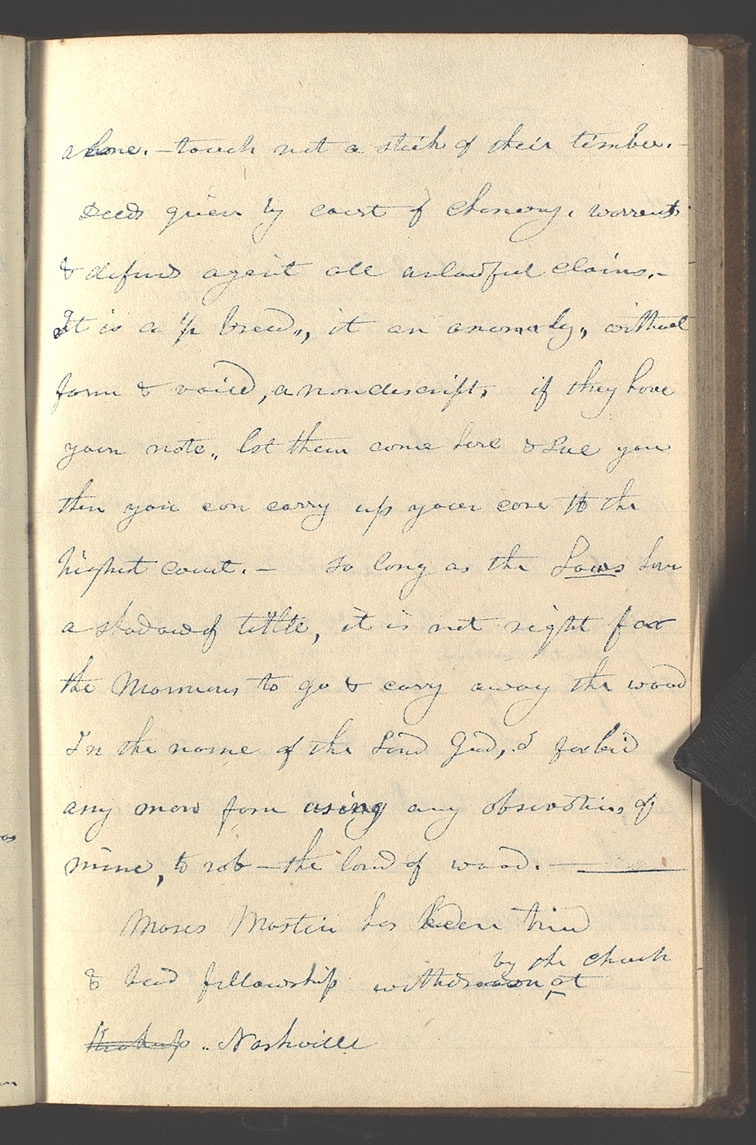 alone. - touch not a stick of their timber. -
Deeds given by court of chancery. warrents
& defends agenst all unlawful claims. -
It is a ½ breed,, it an anomaly,, without
form & voiid, a nondescript. if they have
your note,, let them come here & sue you
then you can carry up your case to the
highest court. - so long as the Laws have
a shadow of tittle, it is not right for
the Mormons to go & carry away the wood
In the name of the Lord God, I forbid
any man from using any observations of
mine, to rob - the land of wood. -
Moses Martin has been tried
& had fellowship withdrawn by the church at
Nashville
as